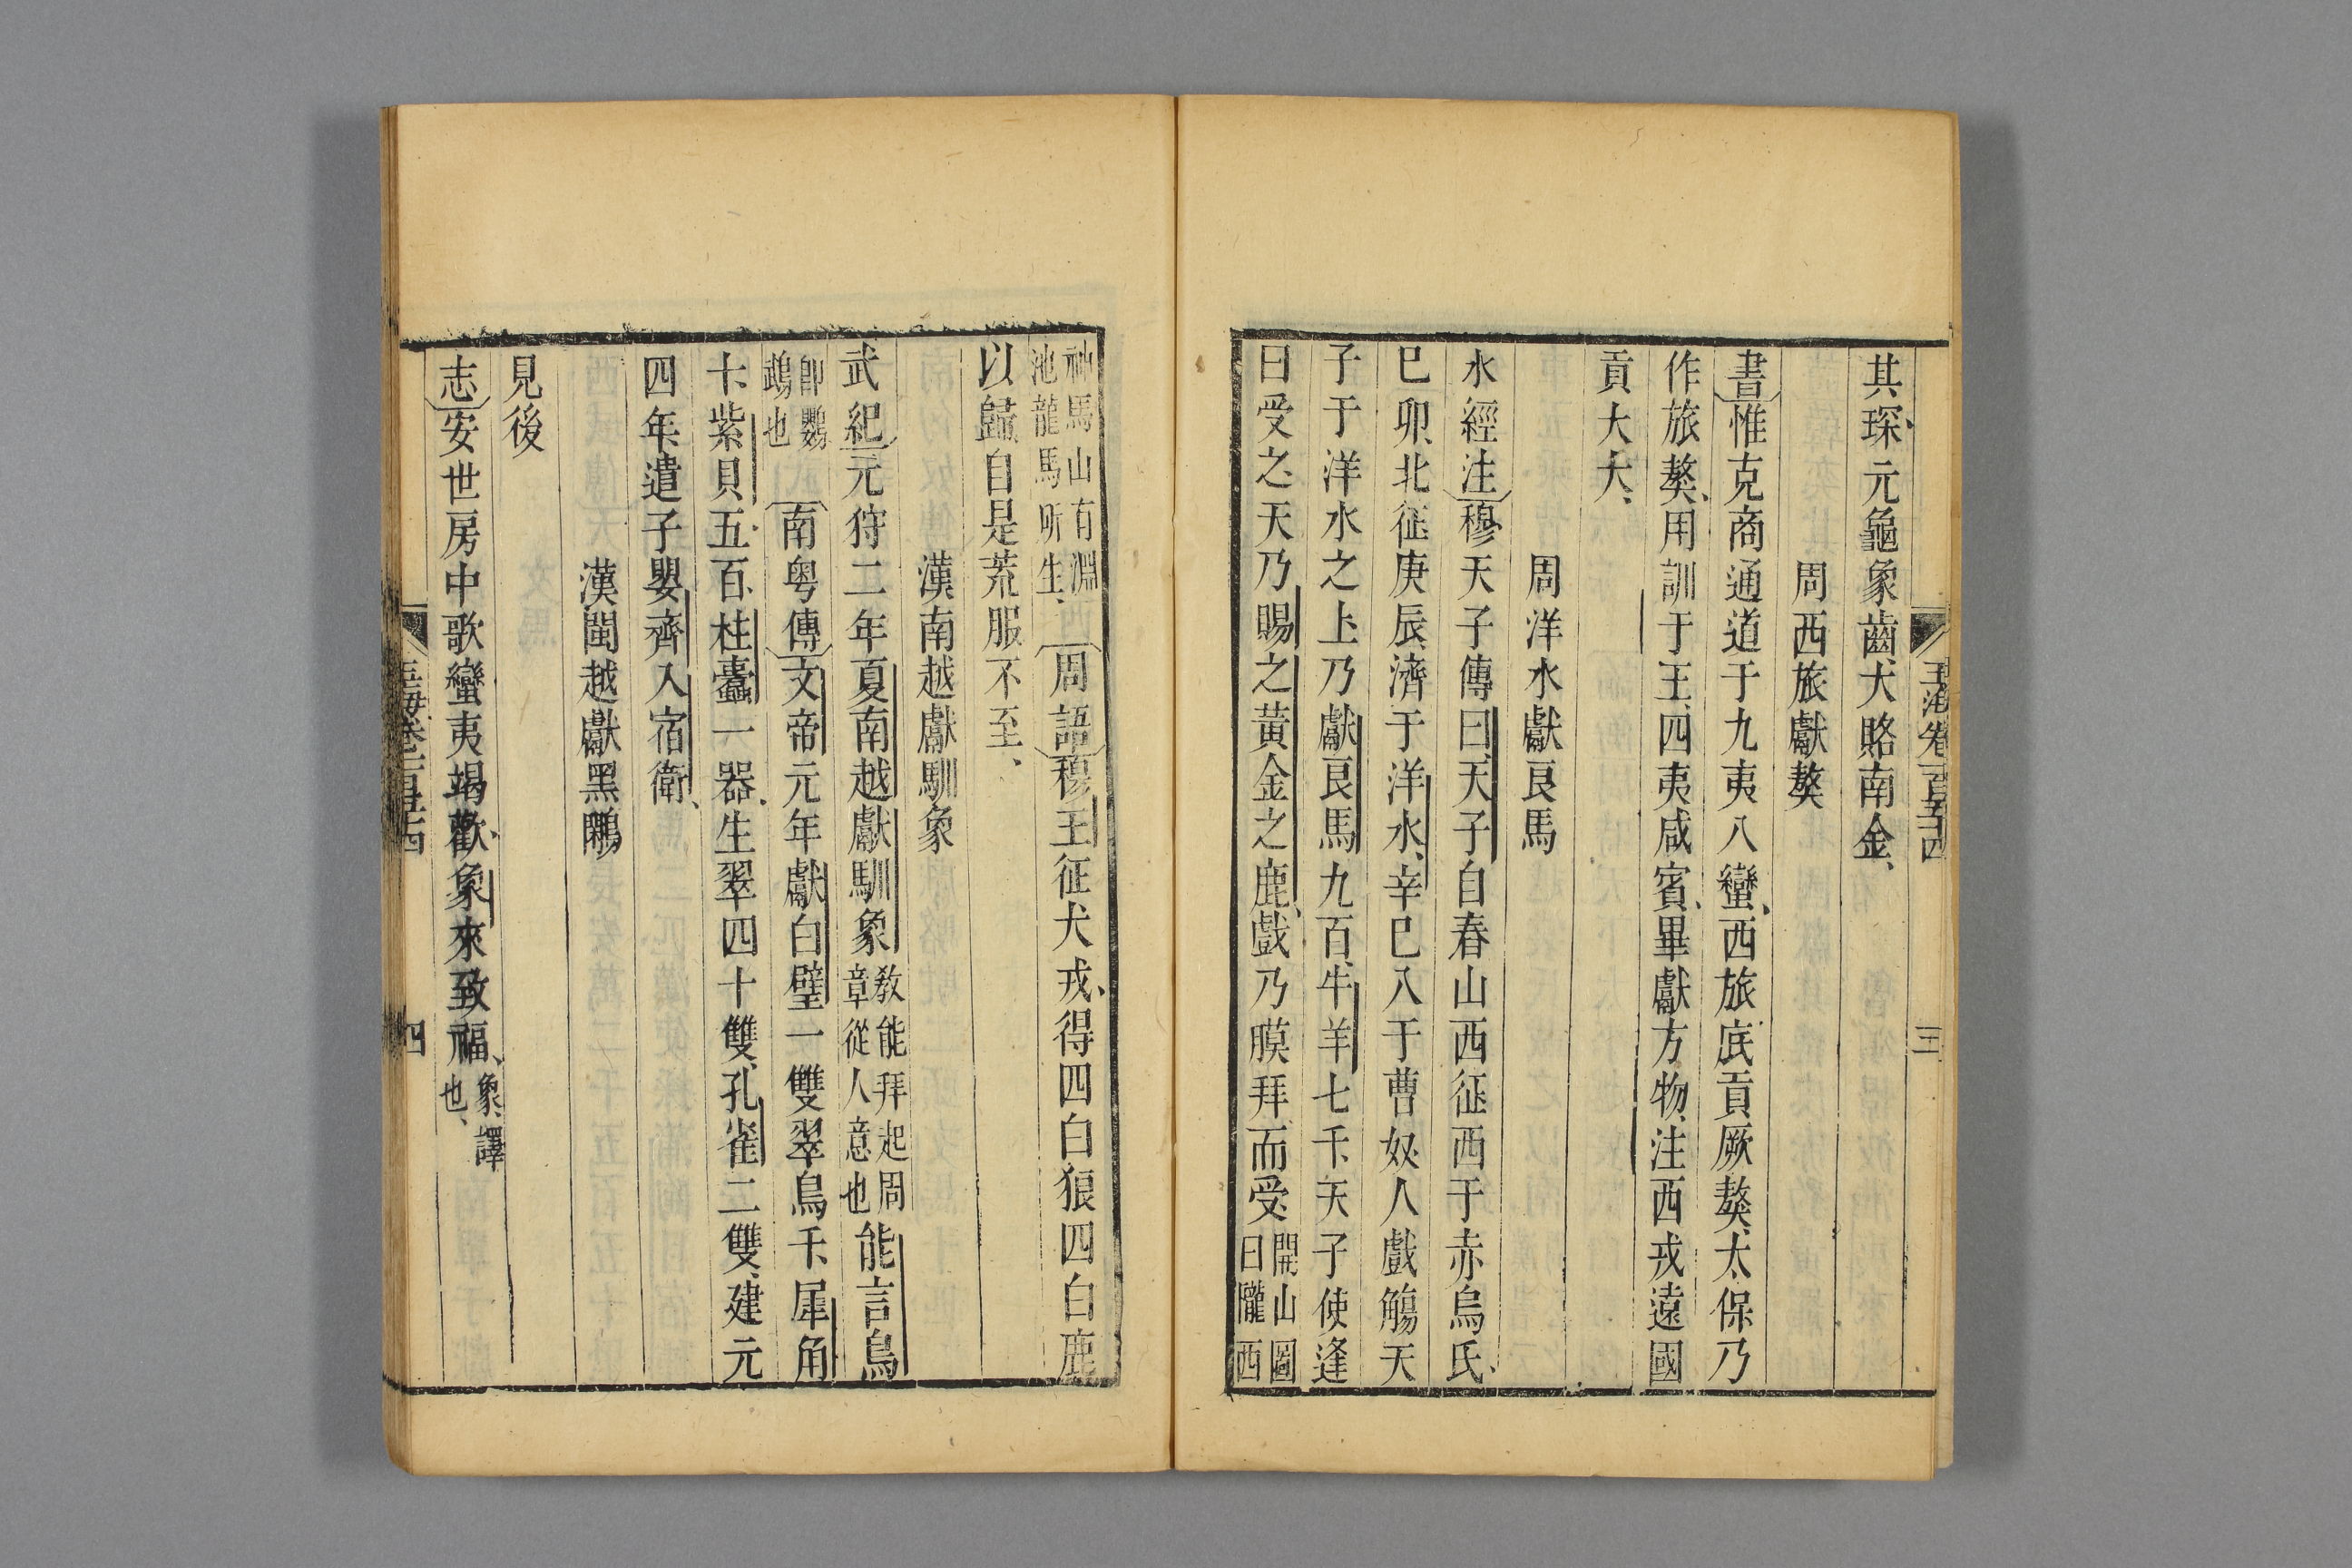 玉海卷一百五十四
三
其琛元龜象齒大賂南金
周西旅獻獒
書惟克商通道于九夷八蠻西旅底貢厥獒太保乃
作旅獒用訓于王四夷咸賓畢獻方物注西戎遠國
貢大犬
周洋水獻良馬
水經注穆天子傳曰天子自春山西征西于赤烏氏
已卯北征庚辰濟于洋水辛巳入于曹奴人戲觴天
子于洋水之上乃獻良馬九百牛羊七千天子使逢
固受之天乃賜之黃金之鹿戲乃膜拜而受開山圖
曰隴西
神馬山有淵
池龍馬所生周語穆王征犬戎得四白狼四白鹿
以歸自是荒服不至
漢南越獻馴象
武紀元狩二年夏南越獻馴象教能拜起周
章從人意也能言鳥
即鸚
鵡也南粤傳文帝元年獻白璧一雙翠鳥千犀角
十紫貝五百桂蠹一器生翠四十雙孔雀二雙建元
四年遣子嬰齊入宿衛
漢閩越獻黑鷴
見後
志安世房中歌蠻夷竭歡象來致福象譯
也
玉海卷一百五十四
四